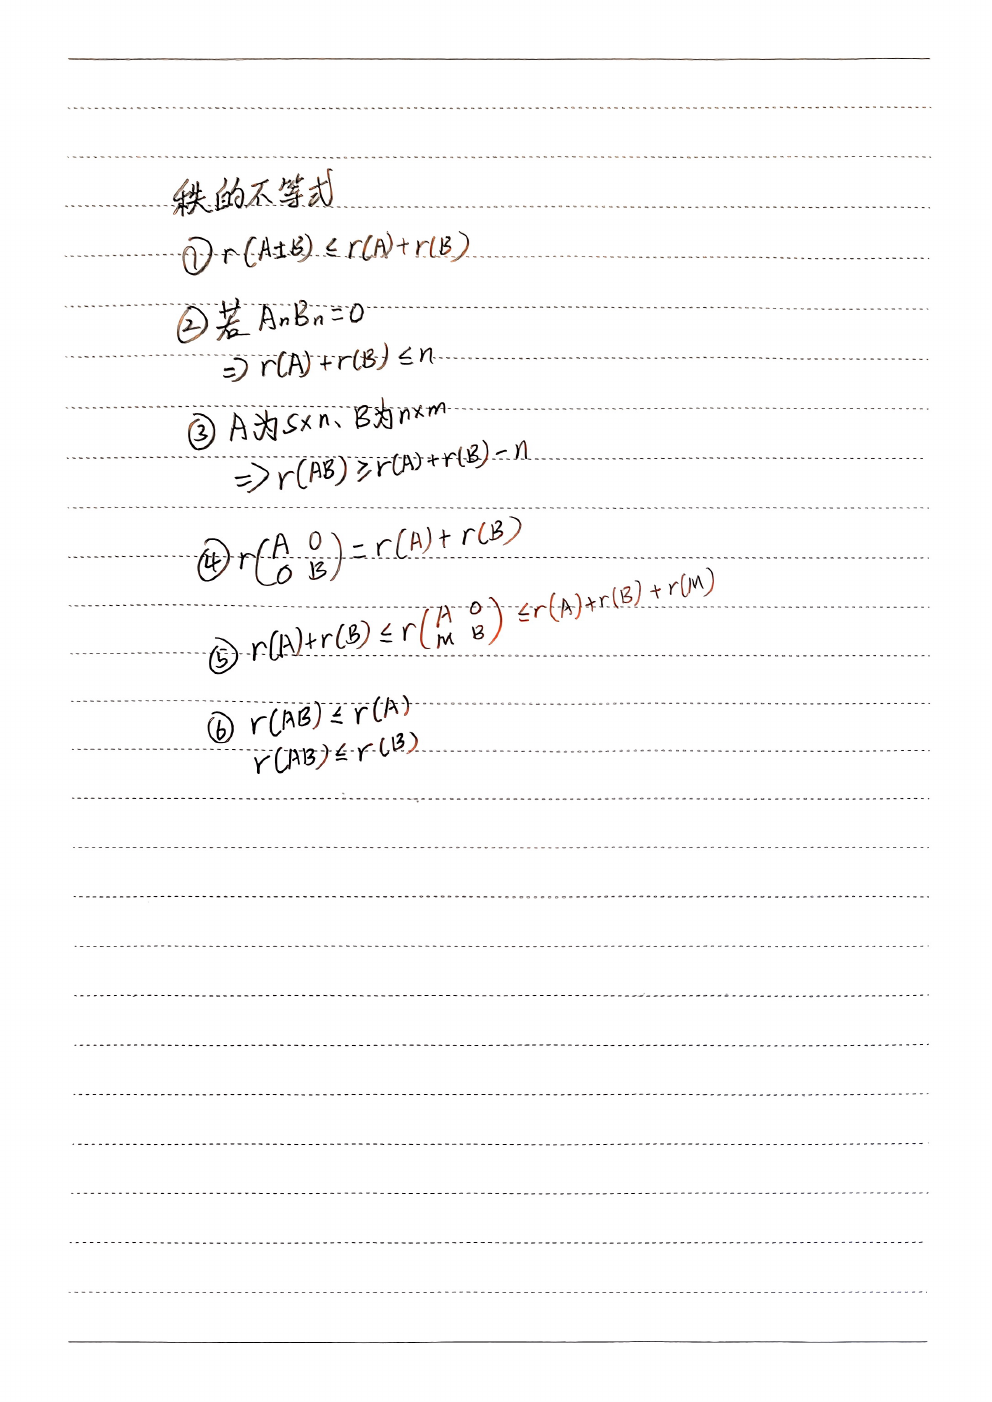 秩的不等式
① r(A±B) ≤ r(A)+r(B)
② 若 AₙBₙ=0
⇒ r(A)+r(B) ≤ n
③ A为s×n、B为n×m
⇒ r(AB) ≥ r(A)+r(B)-n
④ r(A 0
0 B) = r(A)+r(B)
⑤ r(A)+r(B) ≤ r(A 0
M B) ≤ r(A)+r(B)+r(M)
⑥ r(AB) ≤ r(A)
r(AB) ≤ r(B)